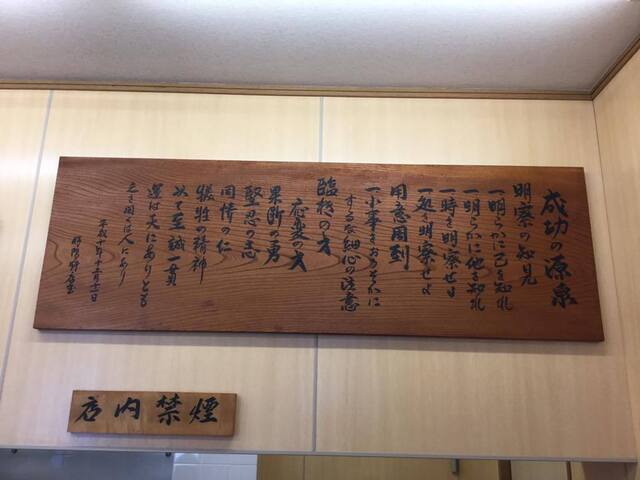 成功の源泉
明察の知見
一明らかに己を知れ
一明らかに他を知れ
一時を明察せよ
一処を明察せよ
用意周到
一小事をおろそかに
するな細心の注意
臨機の才
応変の才
果断の勇
堅忍の志
同情の仁
犠牲の精神
以て至誠一貫
運は天にありとも
之を開くは人にあり
店内禁煙